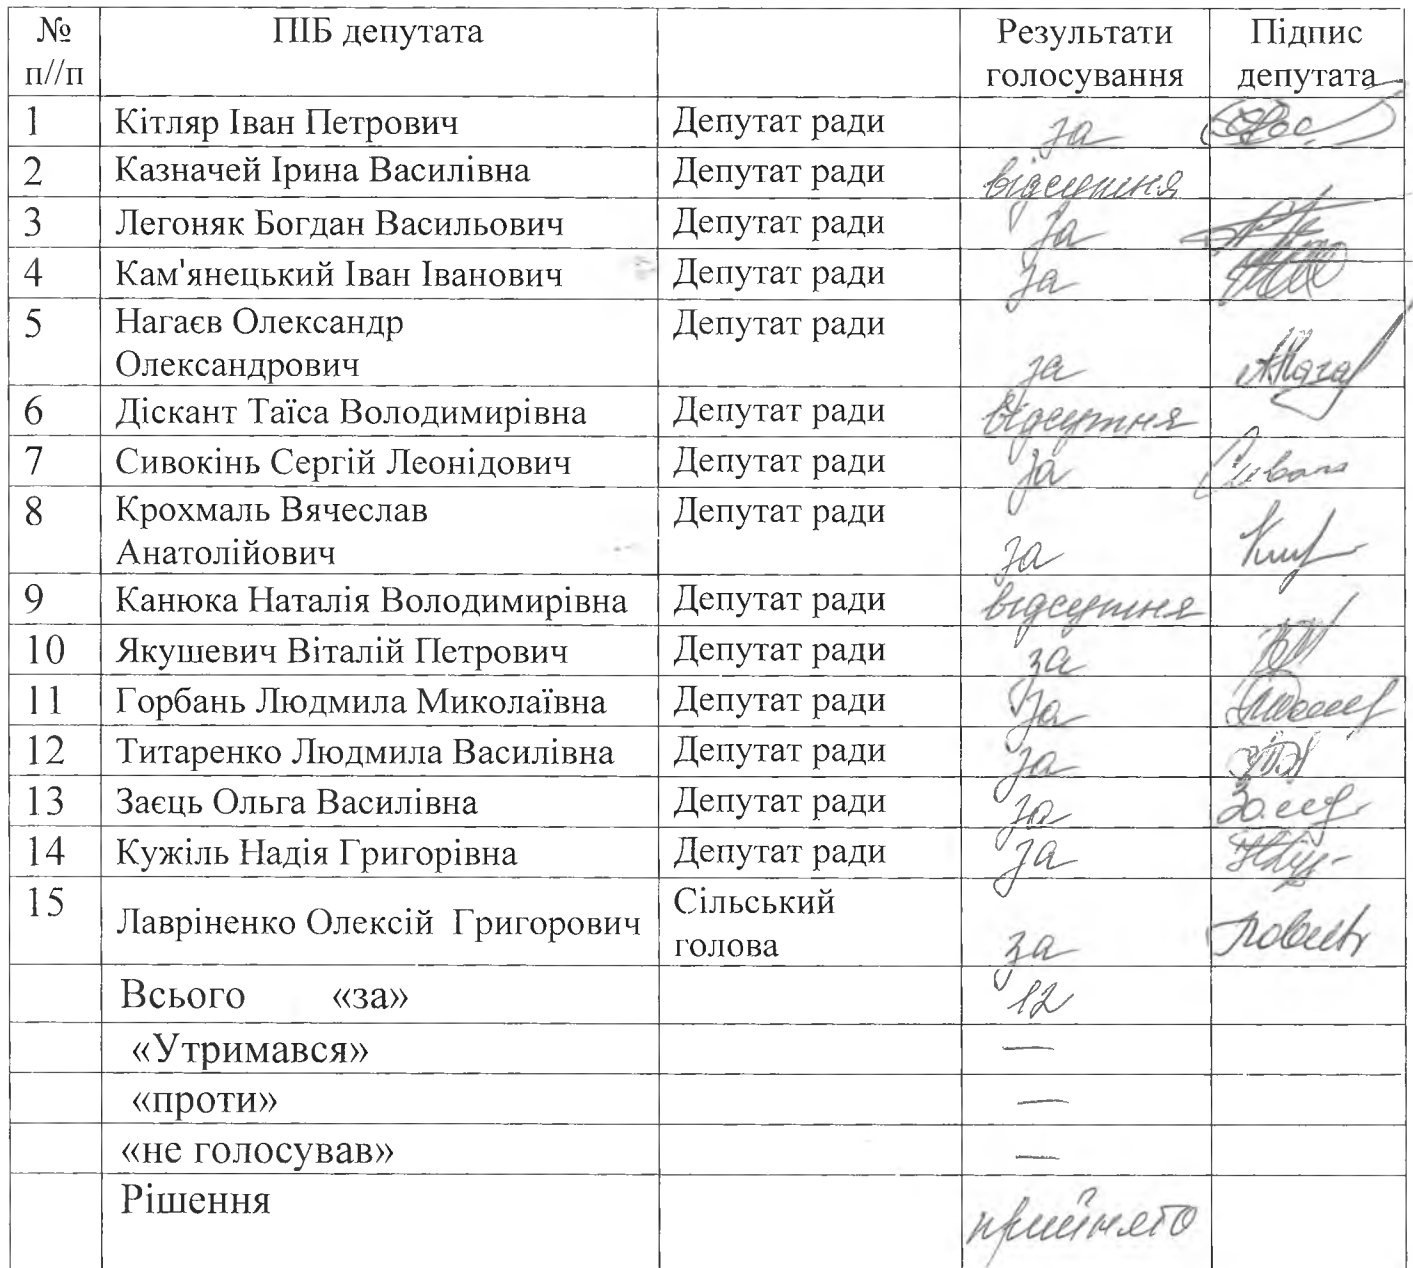 № п//п ПІБ депутата Результати голосування Підпис депутата
1 Кітляр Іван Петрович Депутат ради за
2 Казначей Ірина Василівна Депутат ради відсутня
3 Легоняк Богдан Васильович Депутат ради за
4 Кам'янецький Іван Іванович Депутат ради за
5 Нагаєв Олександр Олександрович Депутат ради за
6 Діскант Таїса Володимирівна Депутат ради відсутня
7 Сивокінь Сергій Леонідович Депутат ради за
8 Крохмаль Вячеслав Анатолійович Депутат ради за
9 Канюка Наталія Володимирівна Депутат ради відсутня
10 Якушевич Віталій Петрович Депутат ради за
11 Горбань Людмила Миколаївна Депутат ради за
12 Титаренко Людмила Василівна Депутат ради за
13 Заєць Ольга Василівна Депутат ради за
14 Кужіль Надія Григорівна Депутат ради за
15 Лавріненко Олексій Григорович Сільський голова за
Всього «за» 12
«Утримався» —
«проти» —
«не голосував» —
Рішення прийнято